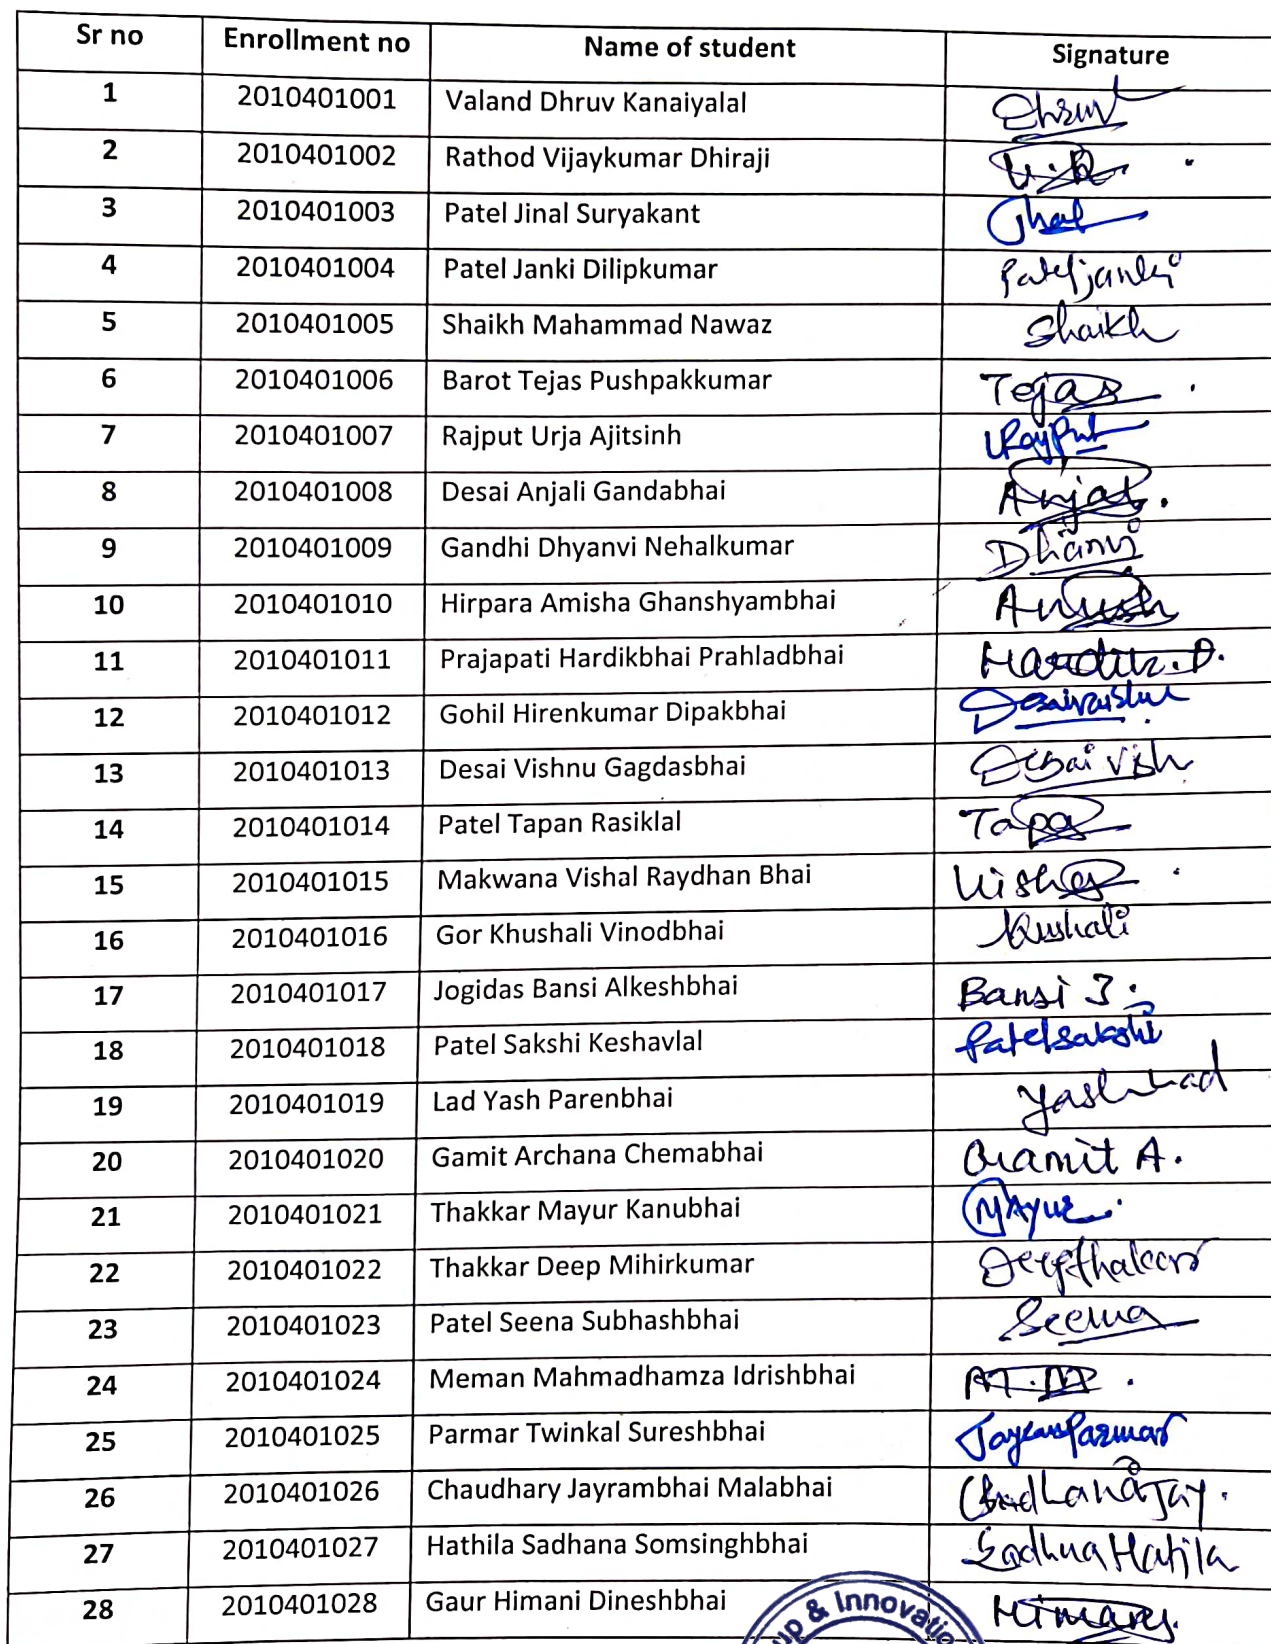 Sr no Enrollment no Name of student Signature
1 2010401001 Valand Dhruv Kanaiyalal Dhruv
2 2010401002 Rathod Vijaykumar Dhiraji
3 2010401003 Patel Jinal Suryakant
4 2010401004 Patel Janki Dilipkumar Patel janki
5 2010401005 Shaikh Mahammad Nawaz Shaikh
6 2010401006 Barot Tejas Pushpakkumar Tejas
7 2010401007 Rajput Urja Ajitsinh
8 2010401008 Desai Anjali Gandabhai
9 2010401009 Gandhi Dhyanvi Nehalkumar
10 2010401010 Hirpara Amisha Ghanshyambhai
11 2010401011 Prajapati Hardikbhai Prahladbhai Hardik.P.
12 2010401012 Gohil Hirenkumar Dipakbhai
13 2010401013 Desai Vishnu Gagdasbhai Desai Vish
14 2010401014 Patel Tapan Rasiklal
15 2010401015 Makwana Vishal Raydhan Bhai
16 2010401016 Gor Khushali Vinodbhai
17 2010401017 Jogidas Bansi Alkeshbhai Bansi J.
18 2010401018 Patel Sakshi Keshavlal Patel sakshi
19 2010401019 Lad Yash Parenbhai Yash Lad
20 2010401020 Gamit Archana Chemabhai Gamit A.
21 2010401021 Thakkar Mayur Kanubhai Mayur
22 2010401022 Thakkar Deep Mihirkumar
23 2010401023 Patel Seena Subhashbhai Seema
24 2010401024 Meman Mahmadhamza Idrishbhai
25 2010401025 Parmar Twinkal Sureshbhai Parmar
26 2010401026 Chaudhary Jayrambhai Malabhai
27 2010401027 Hathila Sadhana Somsinghbhai
28 2010401028 Gaur Himani Dineshbhai
& Innovatio